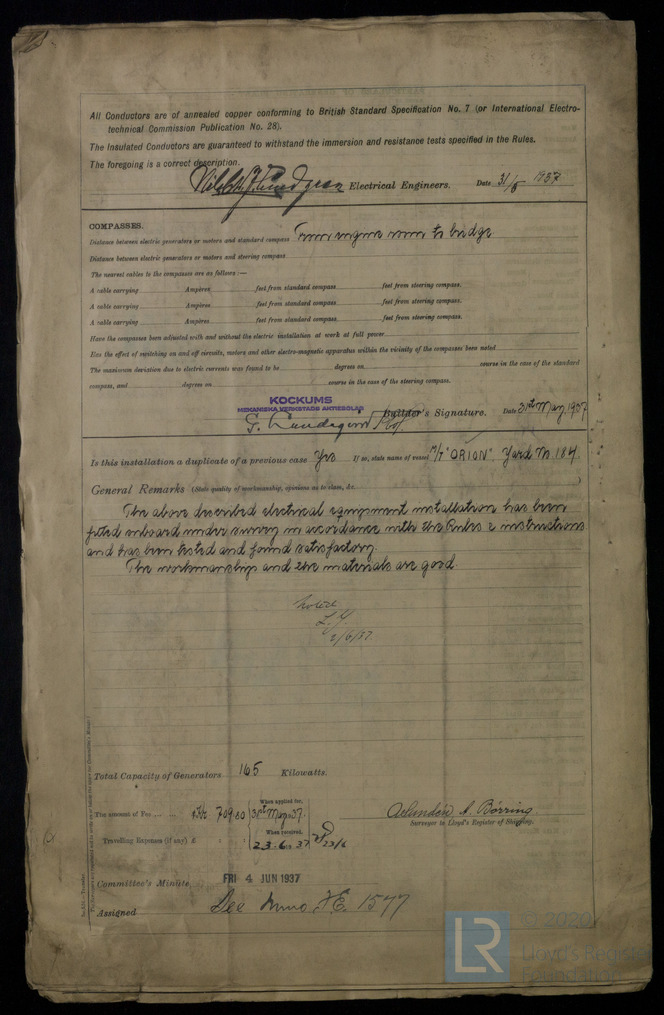 All Conductors are of annealed copper conforming to British Standard Specification No. 7 (or International Electro-
technical Commission Publication No. 28).
The Insulated Conductors are guaranteed to withstand the immersion and resistance tests specified in the Rules.
The foregoing is a correct description.
Electrical Engineers. Date 31/5 1937
COMPASSES.
Distance between electric generators or motors and standard compass From engine room to bridge
Distance between electric generators or motors and steering compass
The nearest cables to the compasses are as follows:—
A cable carrying Ampères feet from standard compass feet from steering compass.
A cable carrying Ampères feet from standard compass feet from steering compass.
A cable carrying Ampères feet from standard compass feet from steering compass.
Have the compasses been adjusted with and without the electric installation at work at full power
Has the effect of switching on and off circuits, motors and other electro-magnetic apparatus within the vicinity of the compasses been noted
The maximum deviation due to electric currents was found to be degrees on course in the case of the standard
compass, and degrees on course in the case of the steering compass.
KOCKUMS
MEKANISKA VERKSTADS AKTIEBOLAG
Builder's Signature. Date 31st May 1937
Is this installation a duplicate of a previous case Yes If so, state name of vessel M/T "ORION" Yard No. 184
General Remarks (State quality of workmanship, opinions as to class, &c.
The above described electrical equipment installation has been
fitted onboard under survey in accordance with the Rules & instructions
and has been tested and found satisfactory.
The workmanship and the materials are good.
Noted
2/6/37.
Total Capacity of Generators 165 Kilowatts.
When applied for,
The amount of Fee ... ... Kr 709.80 31st May 37.
Surveyor to Lloyd's Register of Shipping.
When received,
Travelling Expenses (if any) £ : : 23.6.37 23/6
Committee's Minute FRI 4 JUN 1937
Assigned See Mmo F.E. 1577
LR
© 2020
Lloyd's Register
Foundation